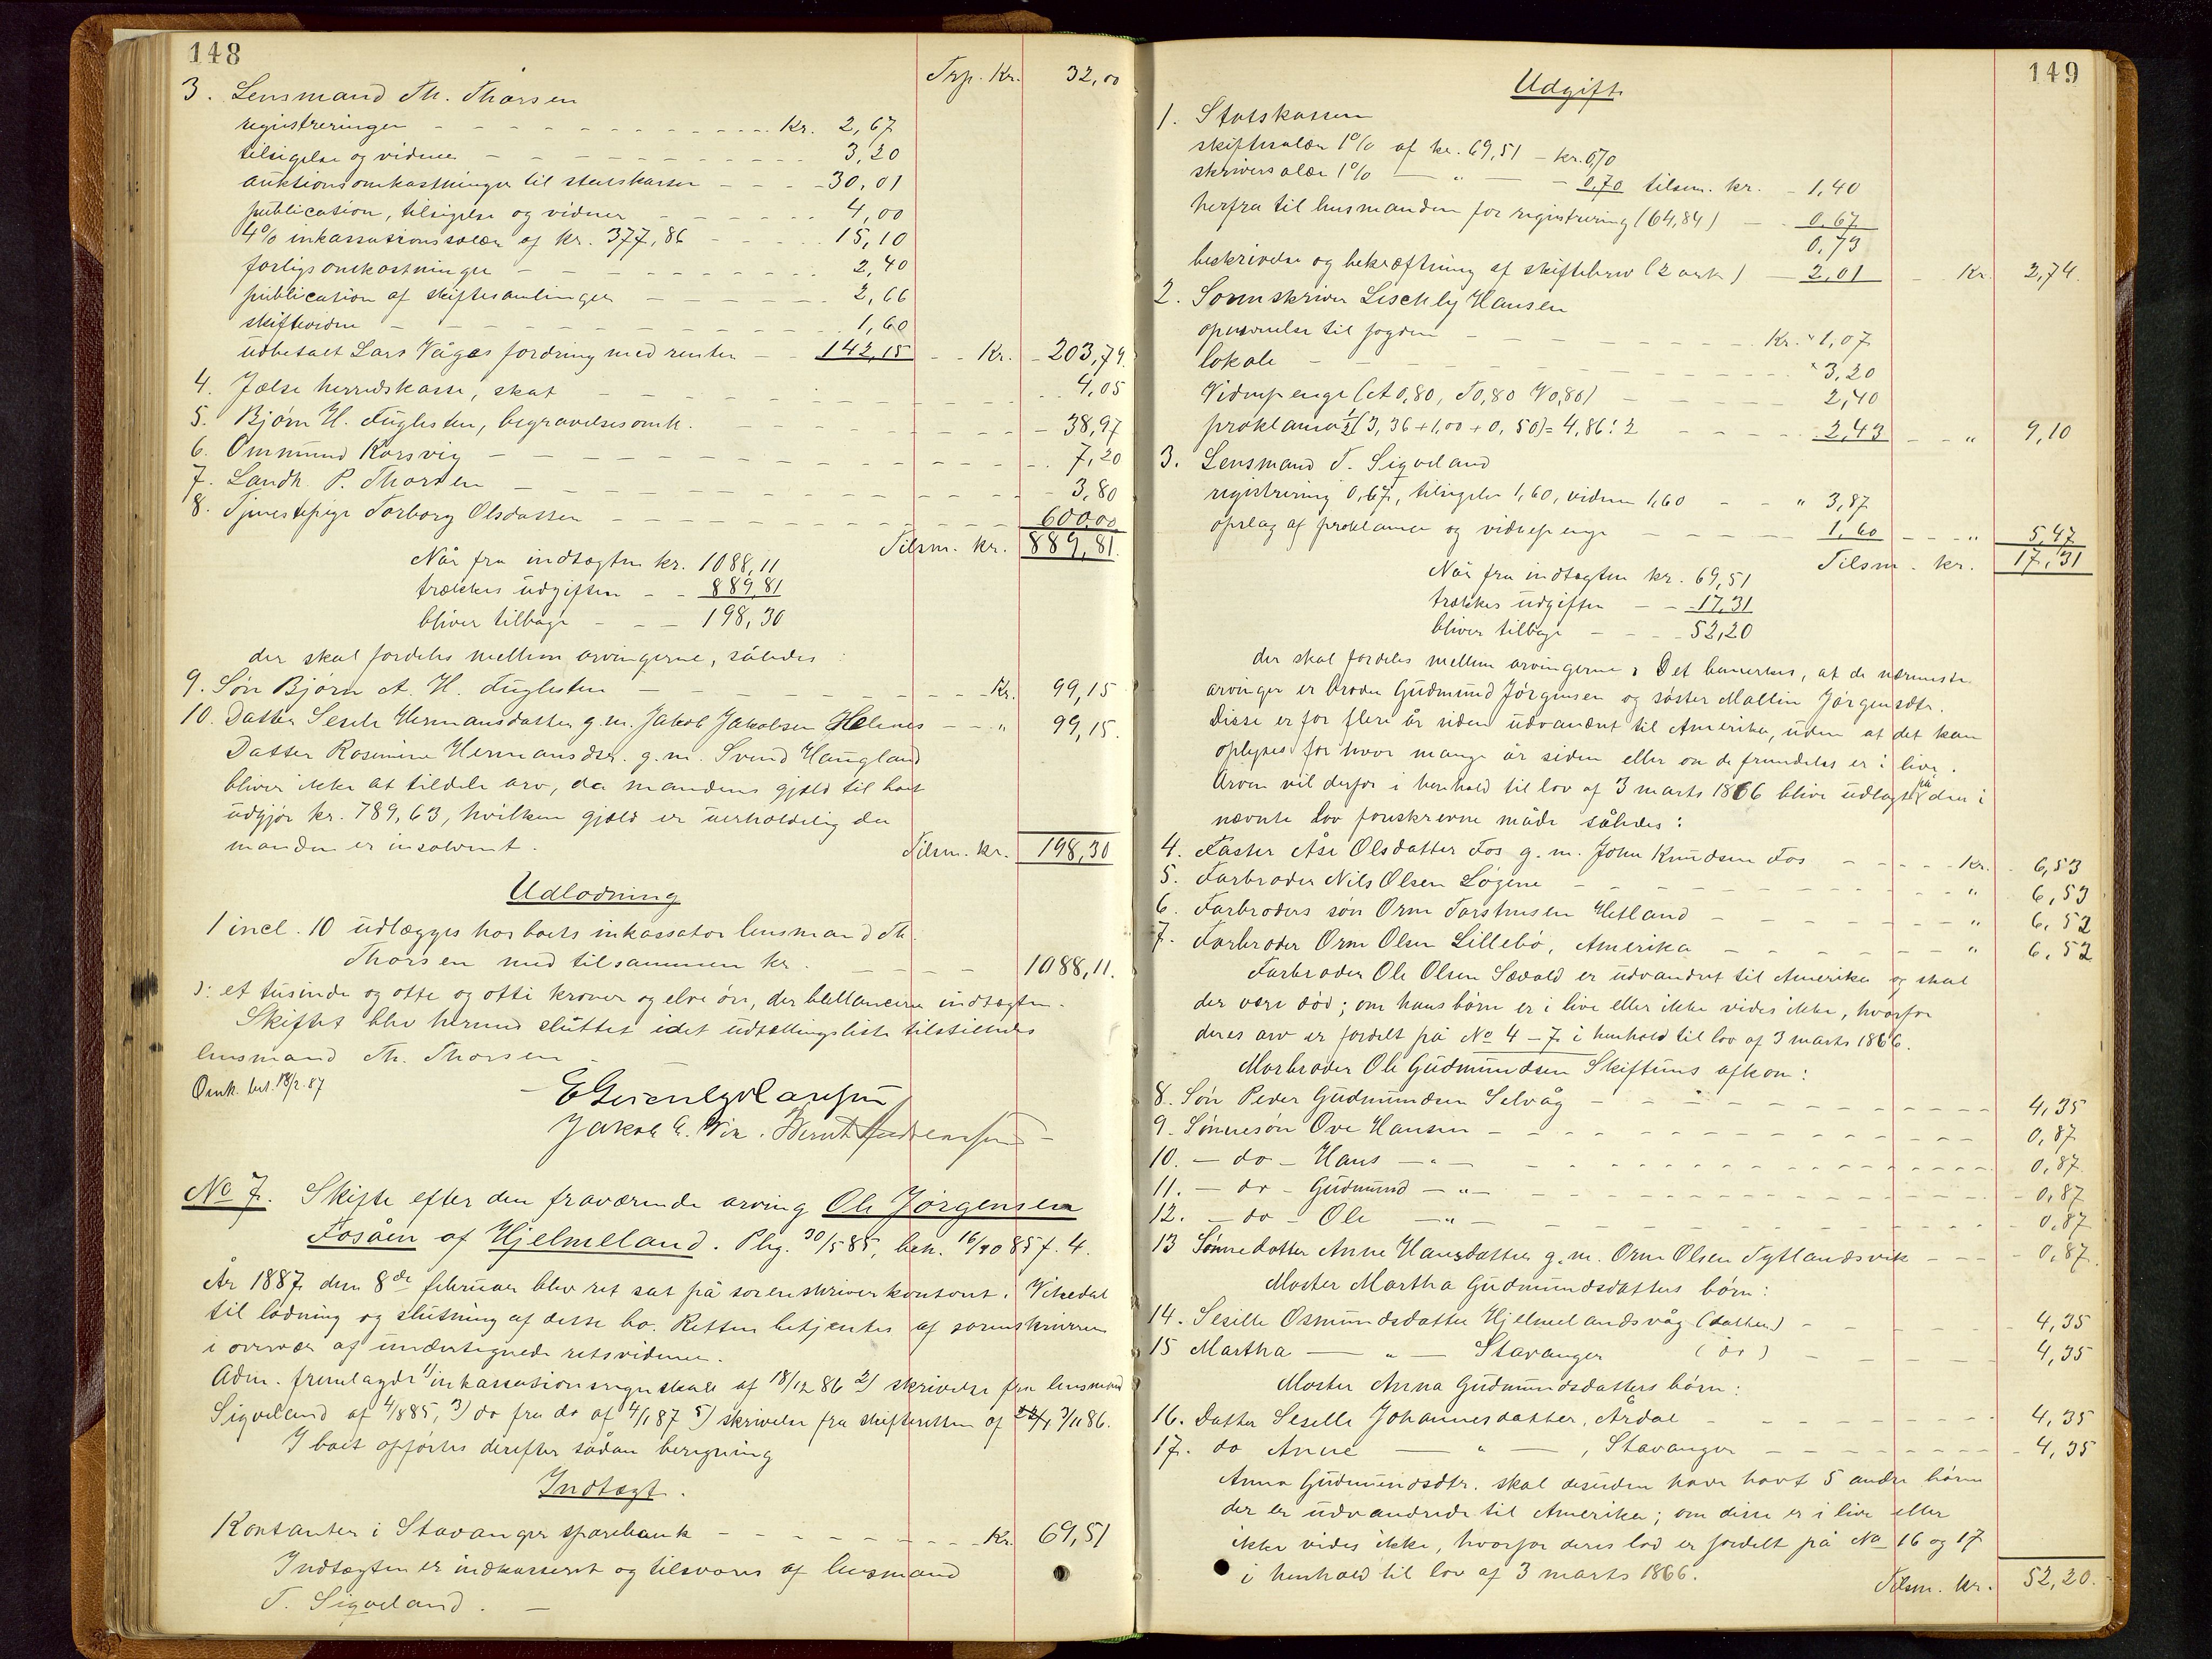 148
Trsp. Kr. 32,00
3. Lensmand Th. Thorsen
registreringen - - - Kr. 2,67
tilsigelse og vidner - - - 3,20
auktionsomkostninger til statskassen - - - 30,01
publication, tilsigelse og vidner - - - 4,00
4% inkassationssalær af kr. 377,86 - - - 15,10
forligsomkostninger - - - 2,40
publication af skiftesamlinger - - - 2,66
skiftevidner - - - 1,60
udbetalt Lars Vågas fordring med renter - - 142,15 - - Kr. - 203,79
4. Jælse herredskasse, skat - - - 4,05
5. Bjørn H. Fuglesten, begravelsesomk. - - - 38,97
6. Ommund Korsvig - - - 7,20
7. Landh. P. Thorsen - - - 3,80
8. Tjenestepige Torborg Olsdatter - - - 600,00
Tilsm. kr. 889,81.
Når fra indtægten kr. 1088,11
trækkes udgiften - - 889,81
bliver tilbage - - - 198,30
der skal fordeles mellem arvingerne, således:
9. Søn Bjørn A. H. Fuglesten - - - Kr. 99,15
10. Datter Sesele Hermansdatter g. m. Jakob Jakobsen Helnes - - " 99,15.
Datter Rasmine Hermansdtr. g. m. Svend Haugland
bliver ikke at tildele arv, da mandens gjæld til boet
udgjør kr. 789,63, hvilken gjæld er uerholdelig da
manden er insolvent.
Tilsm. kr. 198,30
Udlodning
1 incl. 10 udlægges hos boets inkassator lensmand Th.
Thorsen med tilsammen kr. - - - 1088,11.
ɔ: et tusinde og otte og otti kroner og elve øre, der ballancerer indtægten.
Skiftet blev hermed sluttet idet udtællingsliste tilstilledes
lensmand Th. Thorsen.
Omk. bet. 18/2 87
Jakob E. Vik. Bernt
No 7. Skifte efter den fraværende arving Ole Jørgensen
Fosåen af Hjelmeland. Plig. 30/5 85, bek. 16/10 85 f. 4.
År 1887 den 8de februar blev ret sat på sorenskriverkontoret i Vikedal
til lodning og slutning af dette bo. Retten betjentes af sorenskriveren
i overvær af undertegnede retsvidner.
Adm. fremlagde 1) inkassationsregnskab af 18/12 86 2) skrivelse fra lensmand
Sigveland af 4/8 85, 3) do fra do af 4/1 87 5) skrivelse fra skifteretten af 3/11 86.
I boet opførtes derefter sådan beregning
Indtægt.
Kontanter i Stavanger sparebank - - - Kr. 69,51
Indtægten er indkasseret og tilsvares af lensmand
T. Sigveland. -
149
Udgift
1. Statskassen
skiftesalær 1% af kr. 69,51 - kr. 0,70
skriversalær 1% - " - - 0,70 tilsm. kr. - 1,40
herfra til lensmanden for registrering (64,84) - - 0,67
0,73
beskrivelse og bekræftning af skiftebrev (2 ark) - 2,01 - Kr. 2,74.
2. Sorenskriver Hansen
til fogden - - - Kr. 1,07
lokale - - - " 3,20
Vidnepenge (A 0,80, T 0,80 V 0,80) - - - 2,40
proklama ½ (3,36 + 1,00 + 0,50) = 4,86 : 2 - - - 2,43 - - " 9,10
3. Lensmand T. Sigveland
registrering 0,67, tilsigelse 1,60, vidner 1,60 - - " 3,87
opslag af proklamer og vidnepenge - - - 1,60 - - - " 5,47
Tilsm. kr. 17,31
Når fra indtægten kr. 69,51
trækkes udgiften - - 17,31
bliver tilbage - - - 52,20
der skal fordeles mellem arvingerne. Det bemerkes, at de nærmeste
arvinger er broder Gudmund Jørgensen og søster Mallin Jørgensdtr.
Disse er for flere år siden udvandret til Amerika, uden at det kan
oplyses for hvor mange år siden eller om de fremdeles er i live.
Arven vil derfor i henhold til lov af 3 marts 1866 blive udlagt på den i
nævnte lov foreskrevne måde således:
4. Faster Åse Olsdatter Fos g. m. John Knudsen Fos - - - Kr. - 6,53
5. Farbroder Nils Olsen Løgene - - - " 6,53
6. Farbroders søn Orm Torstensen Hetland - - - " 6,52
7. Farbroder Orm Olsen Lillebø, Amerika - - - " 6,52
Farbroder Ole Olsen Sævold er udvandret til Amerika og skal
der være død; om hans børn er i live eller ikke vides ikke, hvorfor
deres arv er fordelt på No 4 - 7 i henhold til lov af 3 marts 1866.
Morbroder Ole Gudmundsen Skiftuns afkom:
8. Søn Peder Gudmundsen Selvåg - - - 4,35
9. Sønnesøn Ove Hansen - - - 0,87
10. - do - Hans - " - - - - 0,87.
11. - do - Gudmund - " - - - - 0,87
12. - do - Ole - " - - - - 0,87
13 Sønnedatter Anne Hansdatter g. m. Orm Olsen Tytlandsvik - - - 0,87.
Moster Martha Gudmundsdatters børn:
14. Sesille Osmundsdatter Hjelmelandsvåg (datter) - - - 4,35
15 Martha - " - Stavanger (do) - - - 4,35
Moster Anna Gudmundsdatters børn:
16. Datter Seselle Johannesdatter, Årdal - - - 4,35
17. do Anne - " - , Stavanger - - - 4,35
Anna Gudmundsdtr. skal desuden have havt 5 andre børn
der er udvandrede til Amerika; om disse er i live eller
ikke vides ikke, hvorfor deres lod er fordelt på No 16 og 17
i henhold til lov af 3 marts 1866.
Tilsm. kr. 52,20.